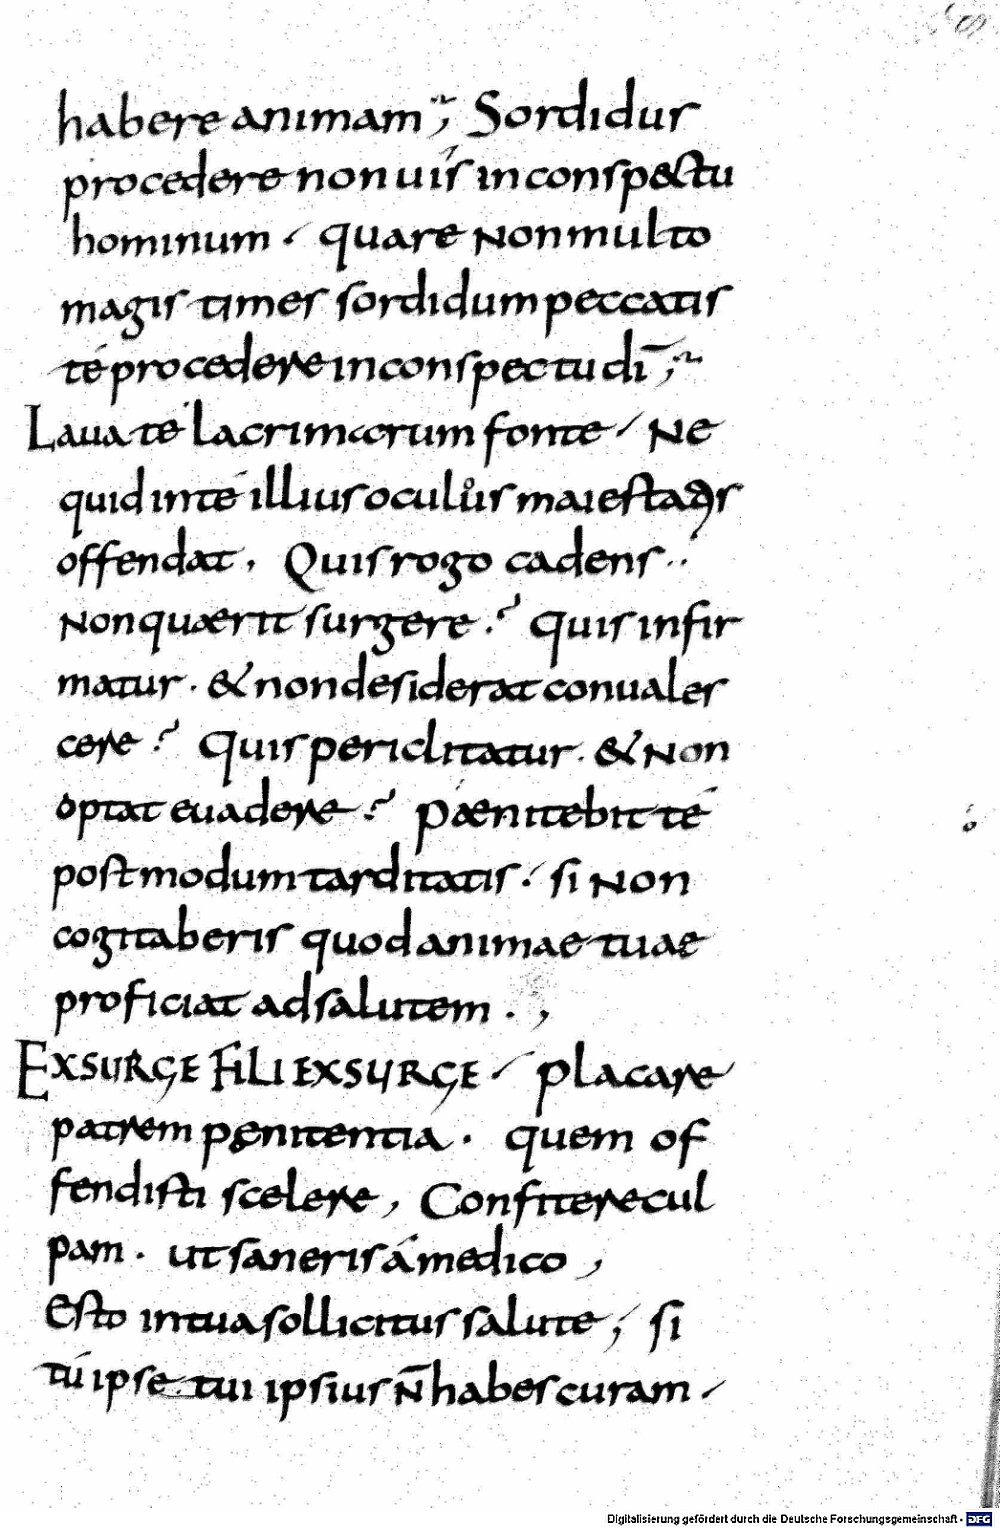 habere animam; Sordidus
procedere non uis in conspectu
hominum. quare non multo
magis times sordidum peccatis
te procedere in conspectu dī;
Laua te lacrimarum fonte. Ne
quid in te illius oculus maiestatis
offendat, Quis rogo cadens.
non quaerit surgere? quis infir
matur. & non desiderat conuales
cere? Quis periclitatur. & non
optat euadere? paenitebit te
post modum tarditatis. si non
cogitaberis quod animae tuae
proficiat ad salutem.,
EXSURGE FILI EXSURGE. placare
patrem penitentia. quem of
fendisti scelere, Confitere cul
pam. ut saneris á medico,
Esto in tua sollicitus salute; si
tú ipse tui ipsius n̄ habes curam.
Digitalisierung gefördert durch die Deutsche Forschungsgemeinschaft - DFG